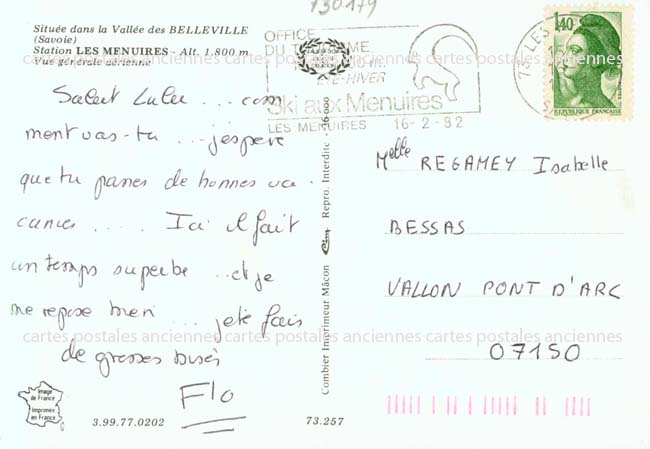 730179
Située dans la Vallée des BELLEVILLE
(Savoie)
Station LES MENUIRES - Alt. 1.800 m
Vue générale aérienne
OFFICE
DU TOURISME
ÉTÉ-HIVER
Ski aux Menuires
LES MENUIRES 16-2-82
73 LES
1,40
REPUBLIQUE FRANÇAISE
Salut Lulu ... com
ment vas-tu ... j'espère
que tu passes de bonnes va
cances ..... Ici il fait
un temps superbe ... et je
me repose bien ... je te fais
de grosses bises
Flo
Melle REGAMEY Isabelle
BESSAS
VALLON PONT D'ARC
07150
Combier Imprimeur Mâcon Cim Repro. Interdite
cartes postales anciennes cartes postales anciennes cartes postales anciennes
cartes postales anciennes cartes postales anciennes cartes postales anciennes
Image
de France
Imprimée
en France
3.99.77.0202
73.257